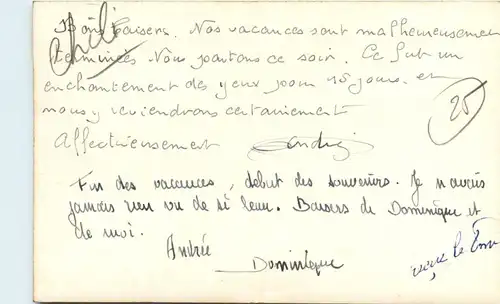 Bons baisers. Nos vacances sont malheureusement
terminées Nous partons ce soir. Ce fut un
enchantement des yeux pour 15 jours. et
nous y reviendrons certainement
Affectueusement
Chili
25
Fin des vacances, début des souvenirs. Je n'avais
jamais rien vu de si beau. Baisers de Dominique et
de moi.
Andrée
Dominique